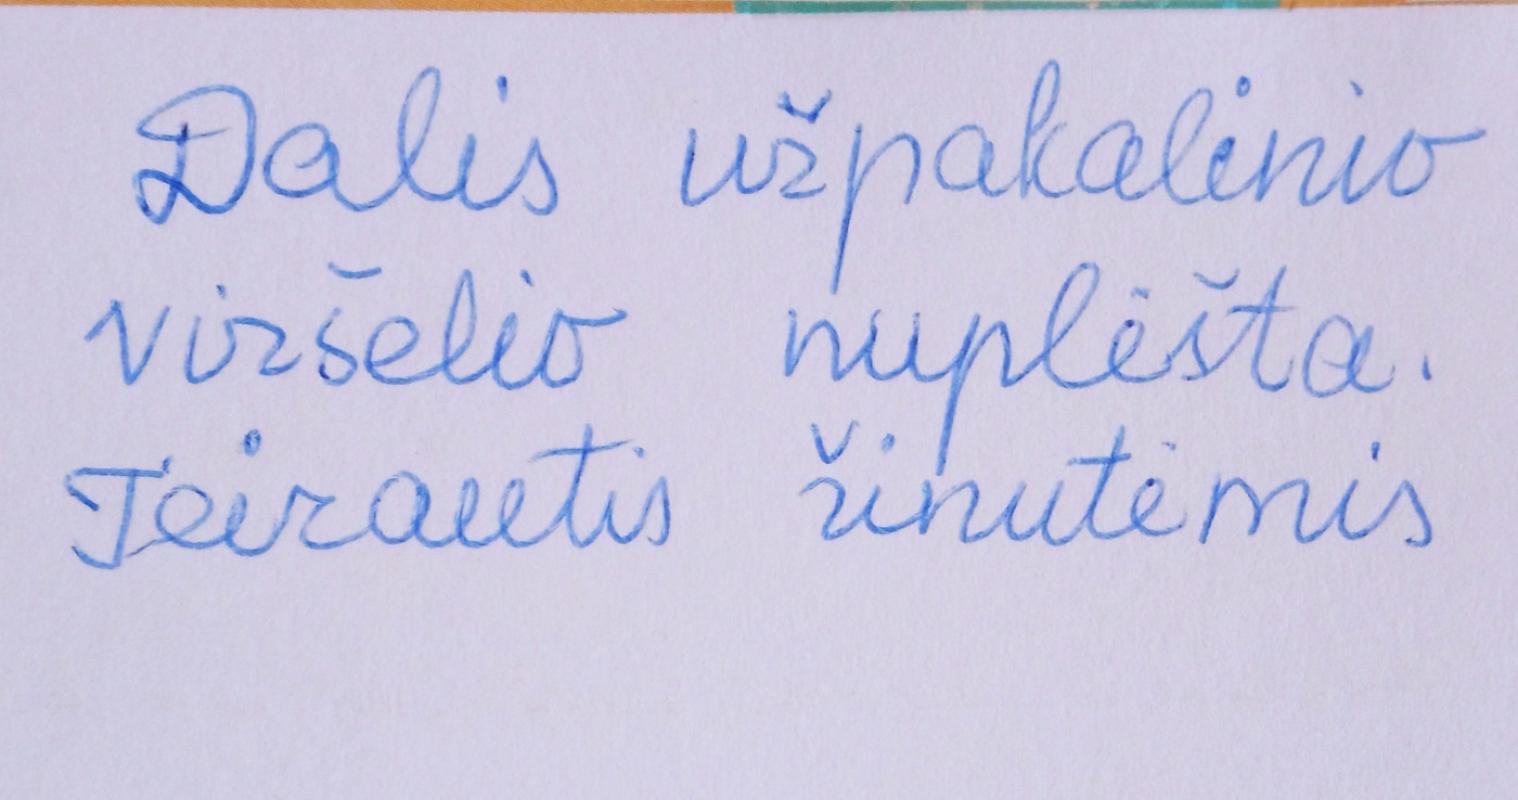 Dalis užpakalinio
viršelio nuplėšta.
Teirautis žinutėmis